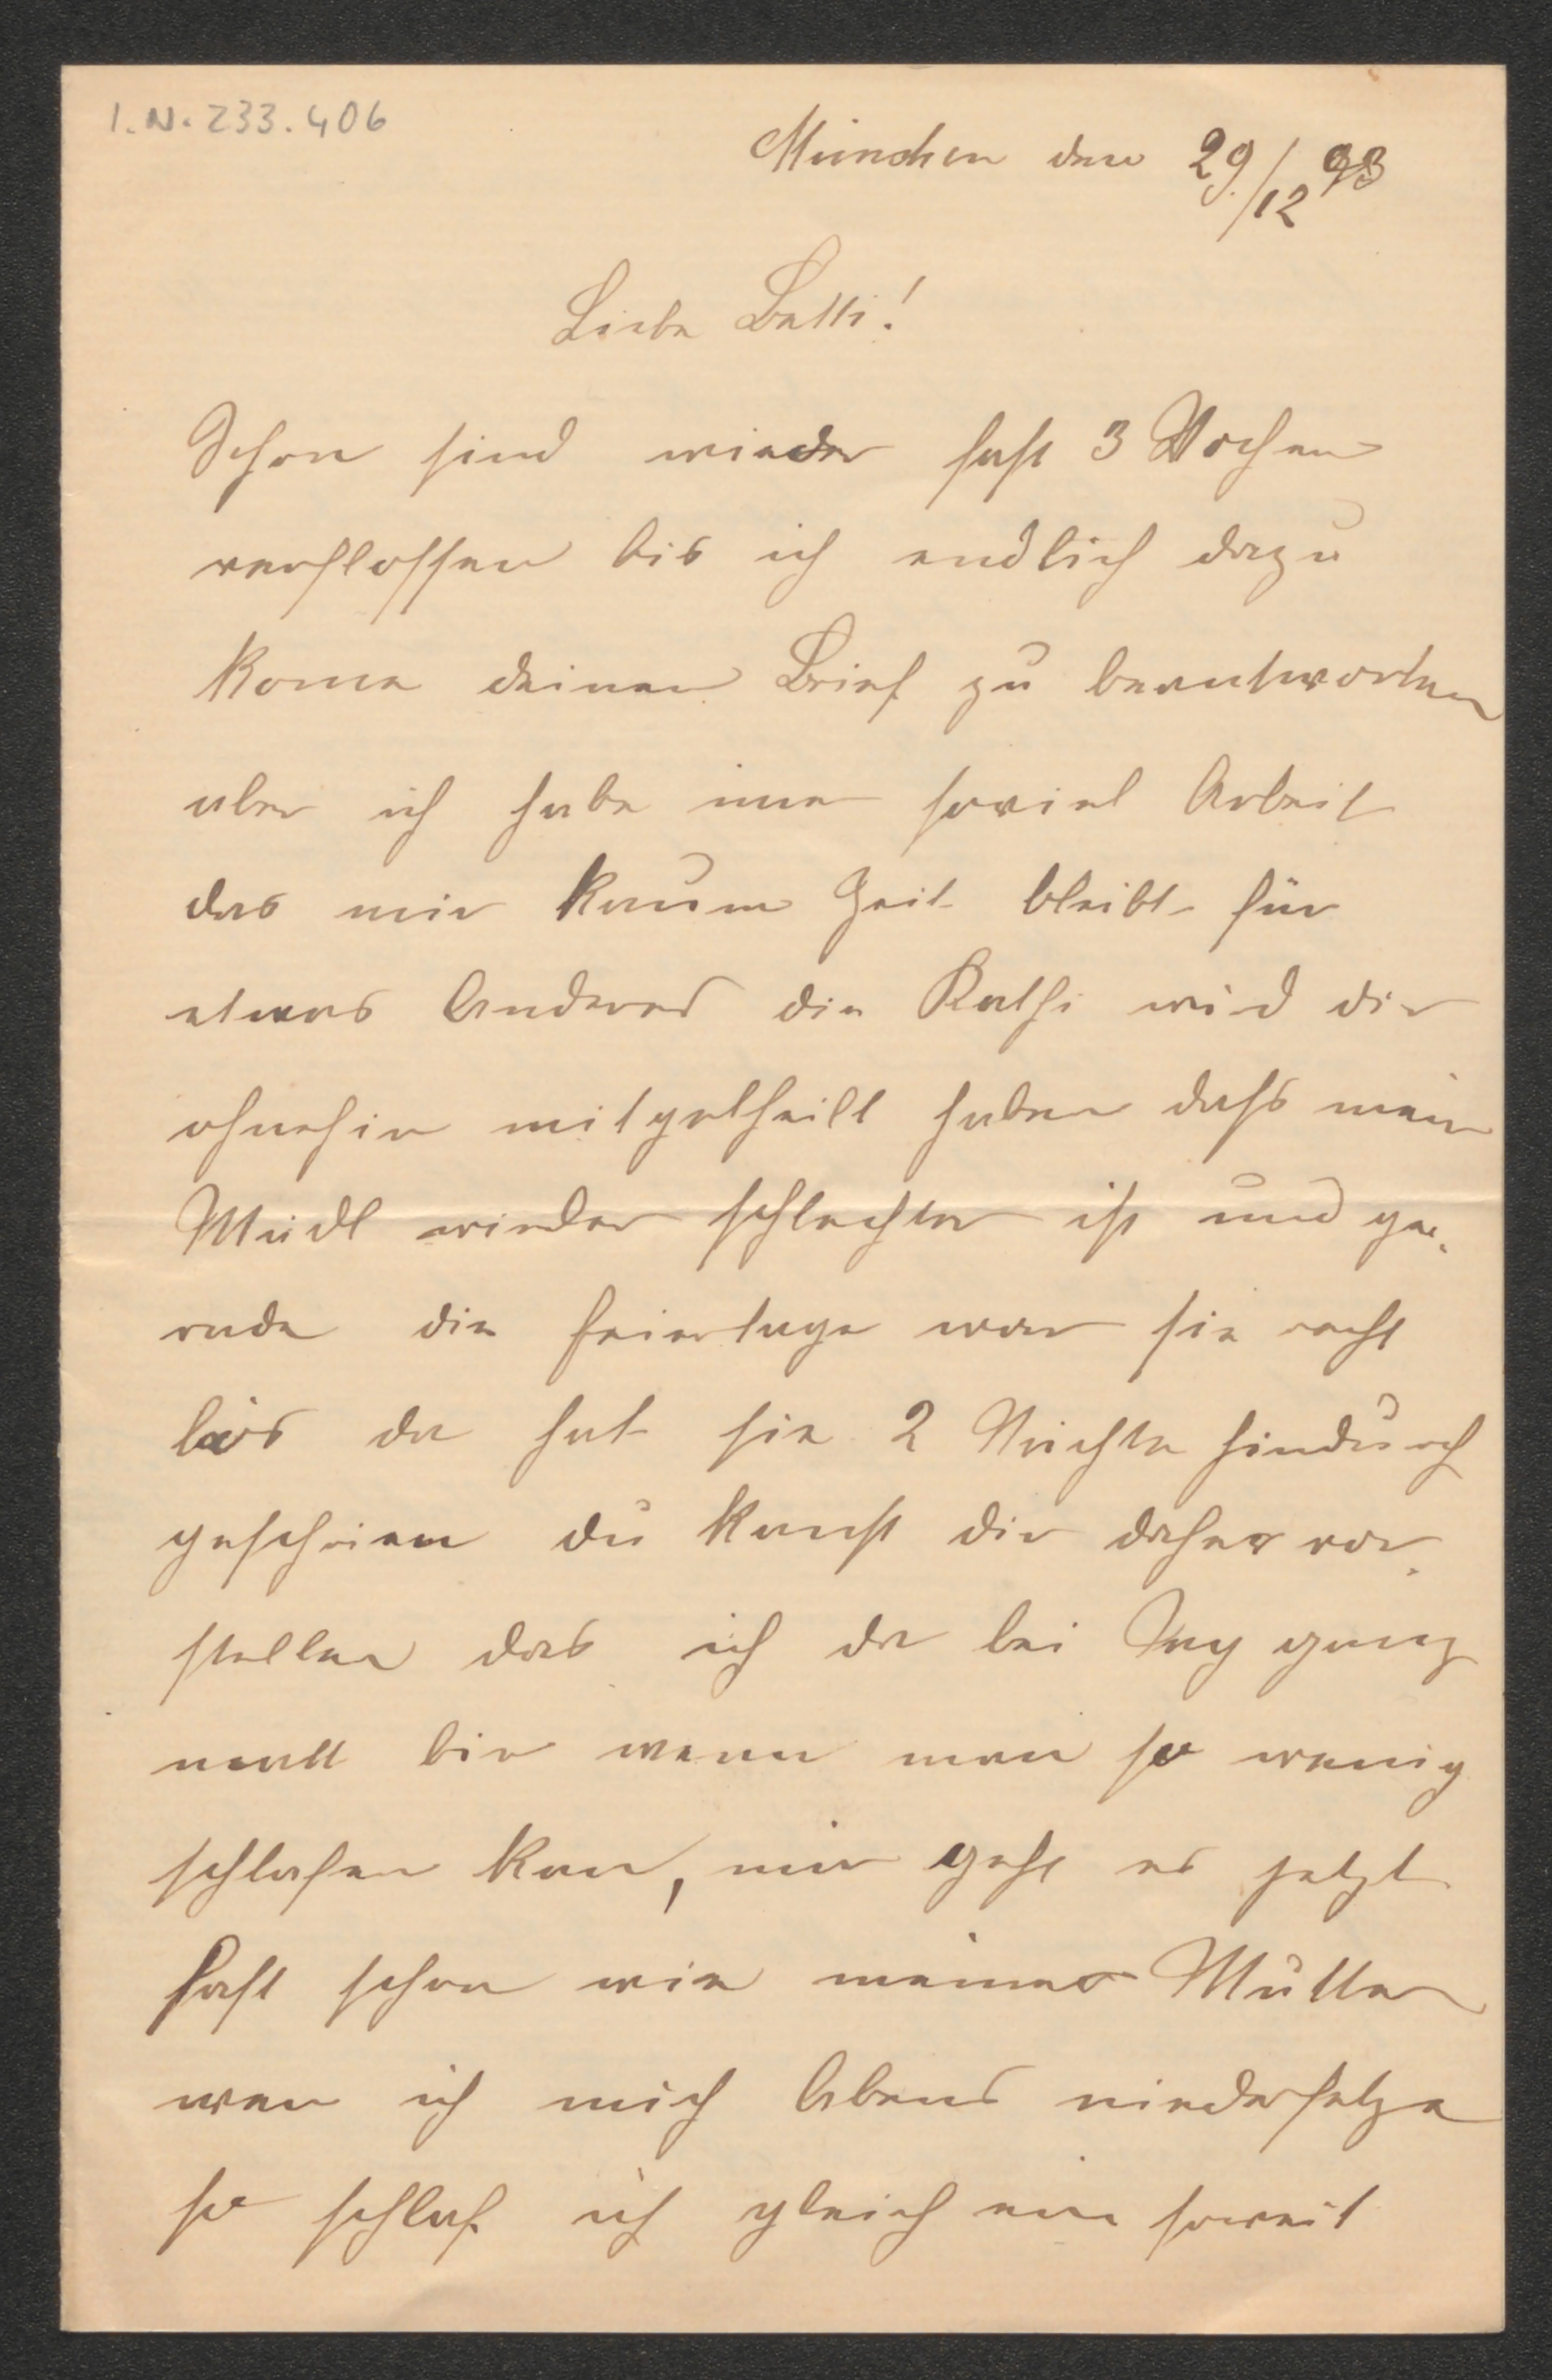 I.N. 233.406
München den 29./12 93
Liebe Betti!
Schon sind wieder fast 3 Wochen
verflossen bis ich endlich dazu
kome deinen Brief zu beantworten
aber ich habe imer soviel Arbeit
das mir kaum Zeit bleibt für
etwas Anderes die Kathi wird dir
ohnehin mitgetheilt haben dass mein
Mädl wieder schlechter ist und ge-
rade die Feiertage war sie recht
bös da hat sie 2 Nächte hindurch
geschrien du kanst dir daher vor-
stellen das ich da bei Tag ganz
matt bin wenn man so wenig
schlafen kan, mir geht es jetzt
fast schon wie meiner Mutter
wen ich mich Abens niedersetze
so schlaf ich gleich ein soweit